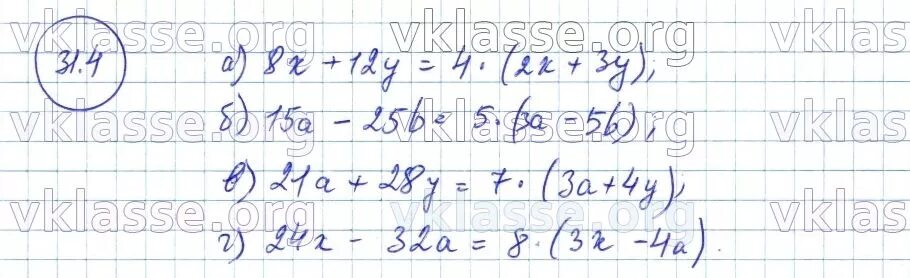 vklasse.org vklasse.org vklas
31.4
а) 8x + 12y = 4 · (2x + 3y);
б) 15a - 25b = 5 · (3a - 5b);
vklasse.org vklasse.org vklas
в) 21a + 28y = 7 · (3a + 4y);
vklasse.org vklasse.org vklas
г) 24x - 32a = 8 · (3x - 4a).